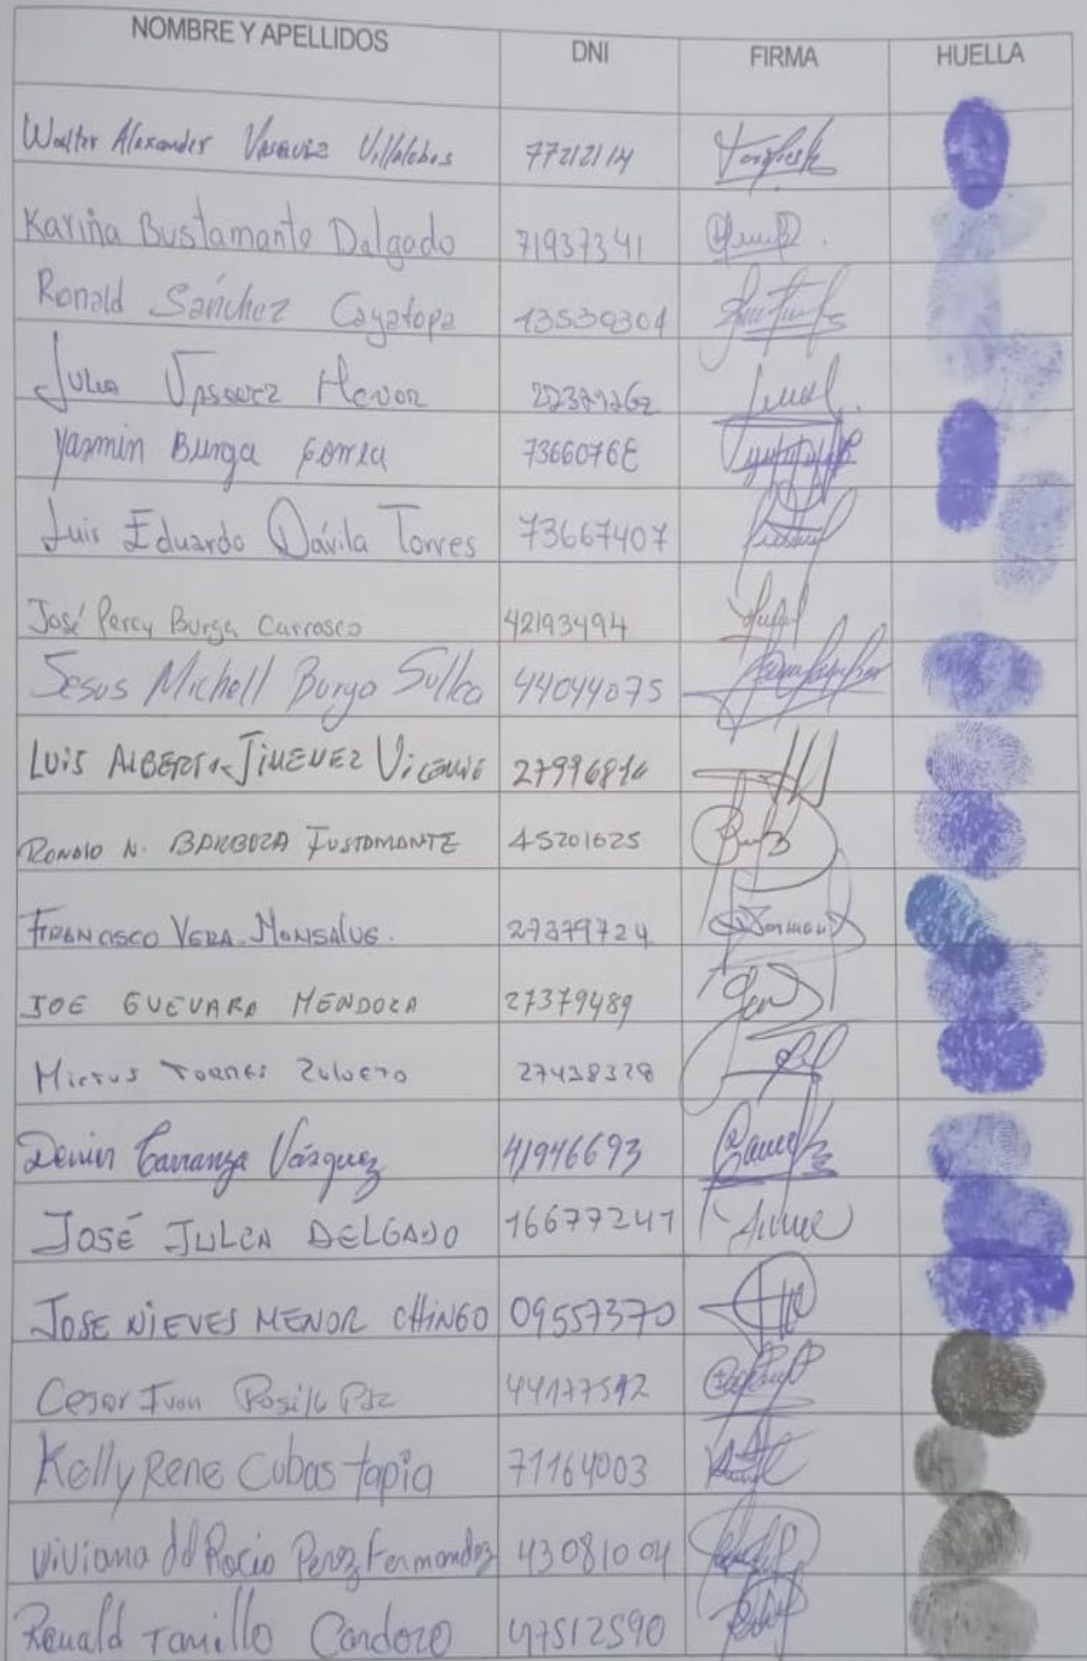 NOMBRE Y APELLIDOS DNI FIRMA HUELLA
Walter Alexander Vasquez Villalobos 77212114
Kariña Bustamante Delgado 71937341
Ronald Sánchez Cayatopa
Julio Vasquez
Yasmin Burga Correa
Luis Eduardo Dávila Torres 73667407
José Percy Burga Carrasco 42193494
Jesus Michell Burga Sullca 44044075
LUIS ALBERTO JIMENEZ Vicente 27996816
RONALD N. BARBOZA FUSTAMANTE 45201625
FRANCISCO VERA MONSALVE. 27379724
JOE GUEVARA MENDOZA 27379489
TORRES 27438328
Deiner Carranza Vásquez 41946693
JOSÉ JULCA DELGADO 16677241
JOSE NIEVES MENOR CHINGO 09557370
Cesar Ivan
Kelly Rene Cubas tapia 71164003
Viviana del Rocio Perez Fernandez 43081004
Ronald Tarrillo Cardozo 47512590